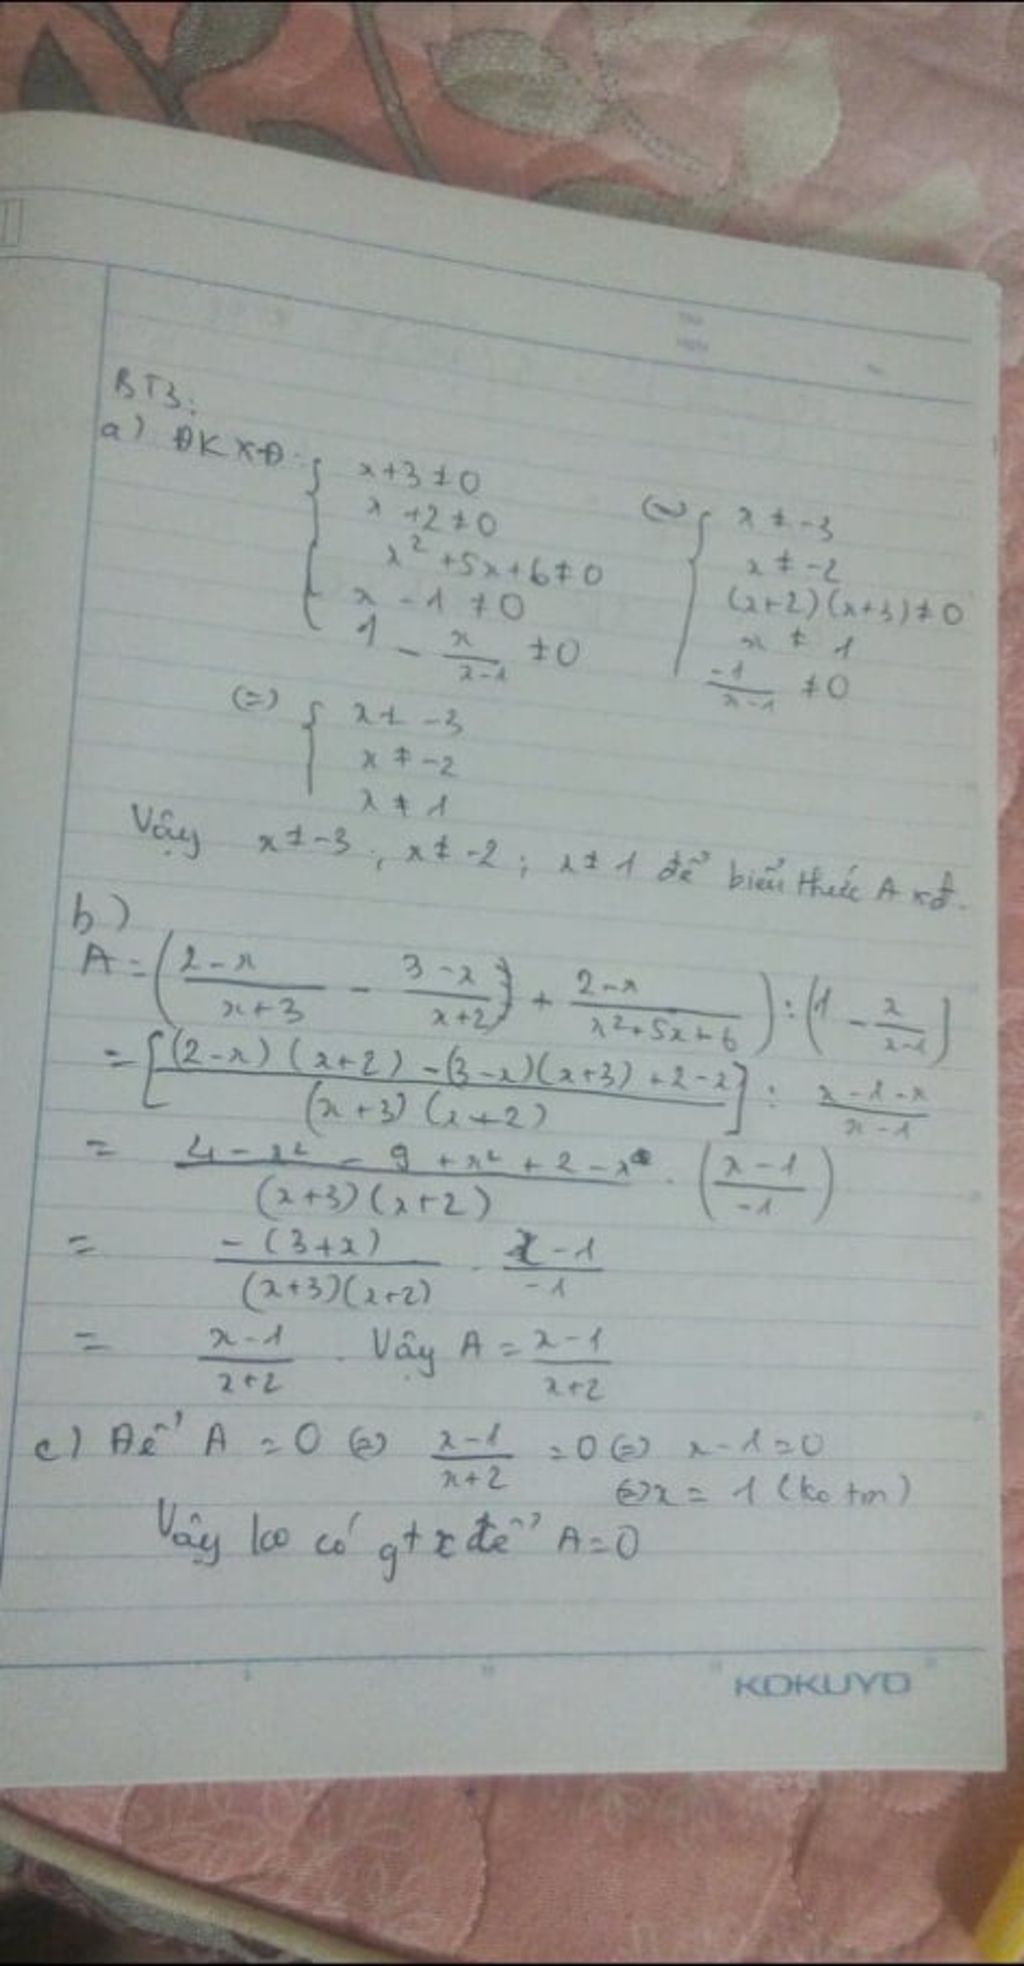 BT3:
a) ĐKXĐ: { x+3≠0
x+2≠0
x²+5x+6≠0
x-1≠0
1 - x/(x-1) ≠0
(=) { x≠-3
x≠-2
(x+2)(x+3)≠0
x≠1
-1/(x-1) ≠0
(=) { x≠-3
x≠-2
x≠1
Vậy x≠-3; x≠-2; x≠1 để biểu thức A xđ.
b)
A = ((2-x)/(x+3) - (3-x)/(x+2) + (2-x)/(x²+5x+6)) : (1 - x/(x-1))
= [((2-x)(x+2) - (3-x)(x+3) + 2-x)/((x+3)(x+2))] : (x-1-x)/(x-1)
= (4-x²-9+x²+2-x)/((x+3)(x+2)) . ((x-1)/-1)
= -(3+x)/((x+3)(x+2)) . (x-1)/-1
= (x-1)/(x+2) . Vậy A = (x-1)/(x+2)
c) Để A = 0 (=) (x-1)/(x+2) = 0 (=) x-1=0
(=) x = 1 (ko tm)
Vậy ko có gt x để A=0
KOKUYO